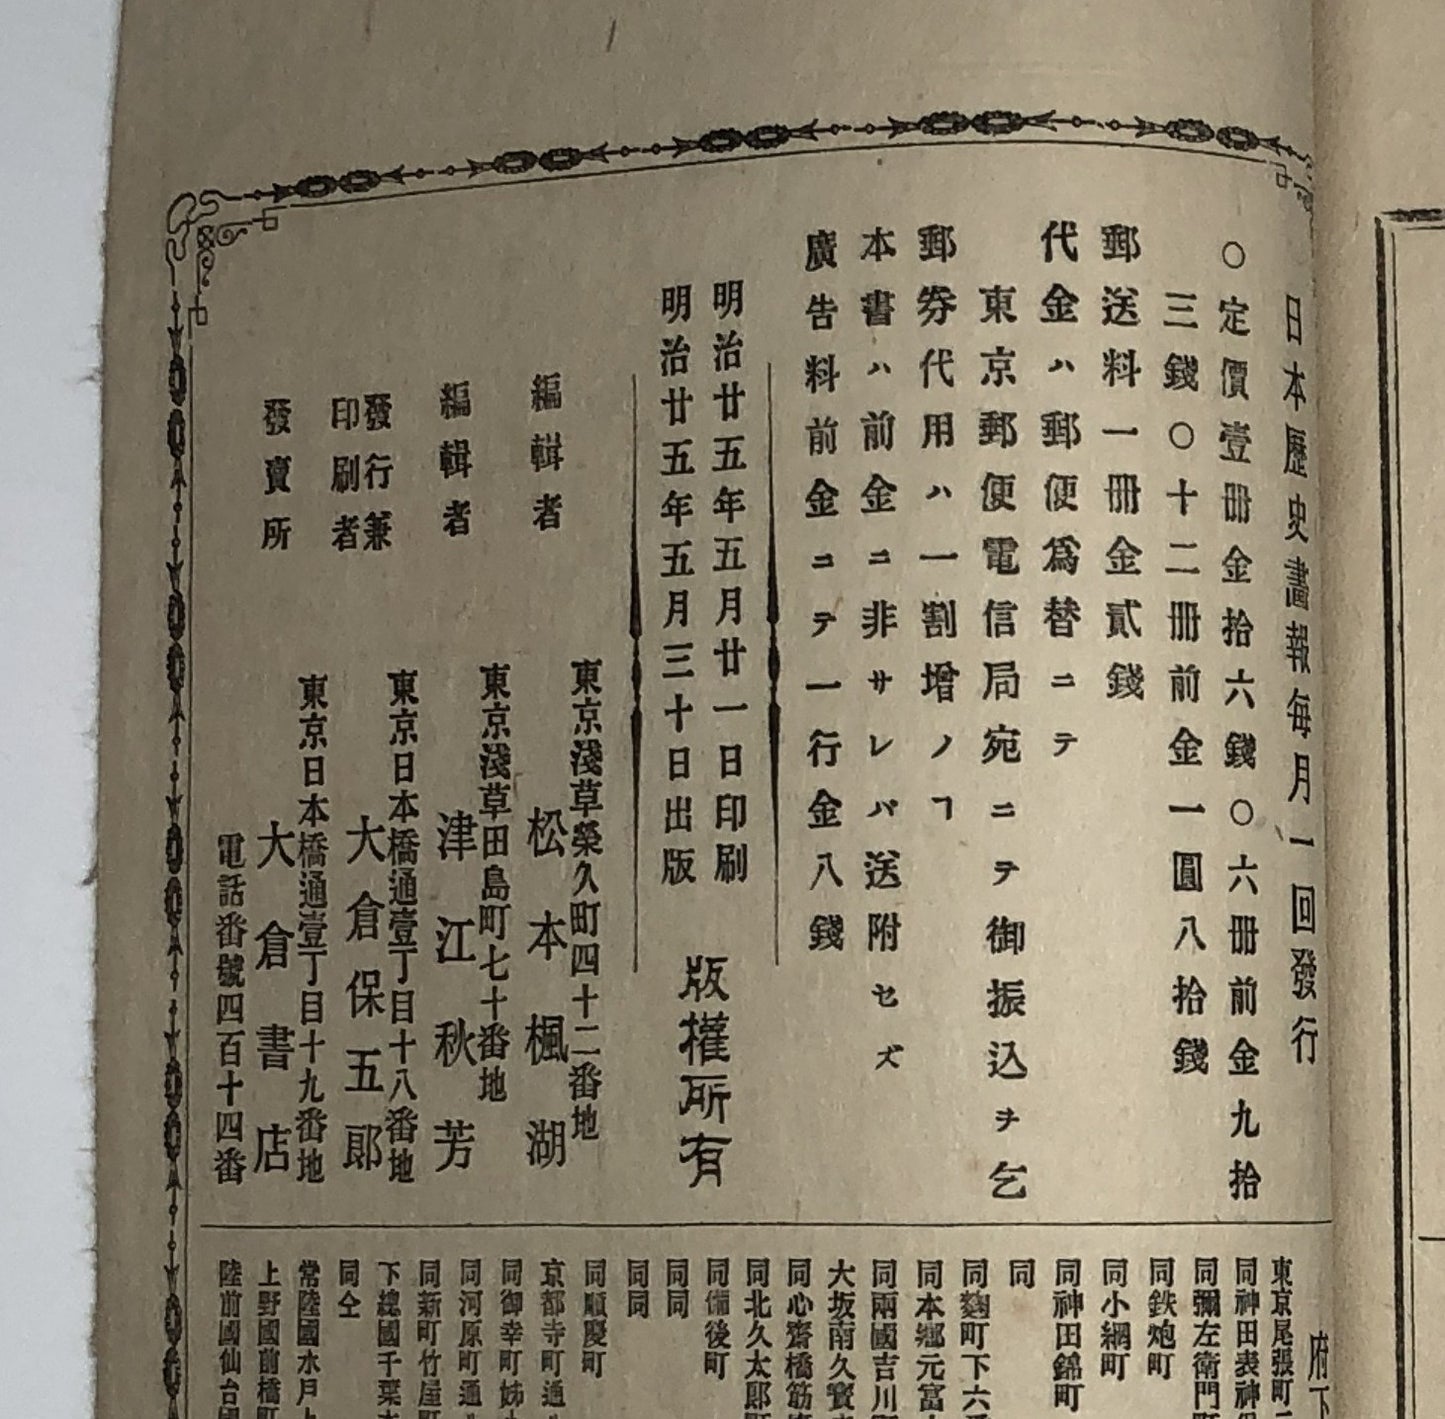 日本歷史畵報每月一回發行
○定價壹冊金拾六錢○六冊前金九拾
三錢○十二冊前金一圓八拾錢
郵送料一冊金貳錢
代金ハ郵便爲替ニテ
東京郵便電信局宛ニテ御振込ヲ乞
郵券代用ハ一割增ノヿ
本書ハ前金ニ非サレバ送附セズ
廣告料前金ニテ一行金八錢
明治廿五年五月廿一日印刷
明治廿五年五月三十日出版
版權所有
東京淺草榮久町四十二番地
編輯者 松本楓湖
東京淺草田島町七十番地
編輯者 津江秋芳
東京日本橋通壹丁目十八番地
發行兼
印刷者 大倉保五郞
東京日本橋通壹丁目十九番地
發賣所 大倉書店
電話番號四百十四番
府下
東京尾張町
同神田表神
同彌左衛門
同鉄炮町
同小網町
同神田錦町
同
同麴町下六
同本鄕元富
同兩國吉川
大坂南久寶
同心齋橋筋
同北久太郎
同備後町
同同
同同
同順慶町
京都寺町通
同御幸町姊
同河原町通
同新町竹屋
下總國千葉
同仝
常陸國水戶上
上野國前橋町
陸前國仙台國